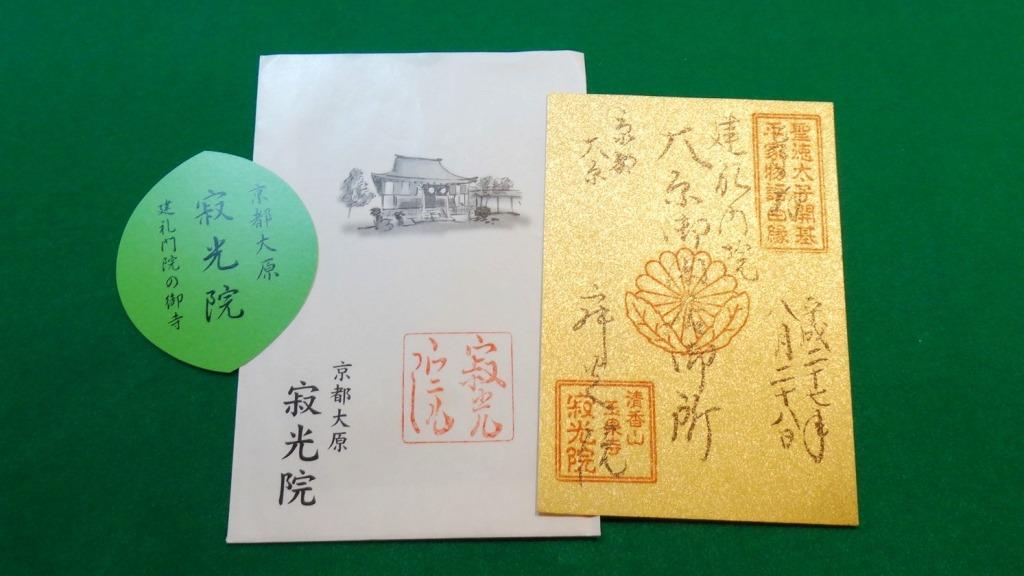 京都大原
寂光院
建礼門院の御寺
寂光
京都大原
寂光院
聖徳太子開基
平家物語由縁
平成二十七年
八月二十八日
建礼門院
大原御所
京都
大原
清香山
玉泉寺
寂光院
寂光院